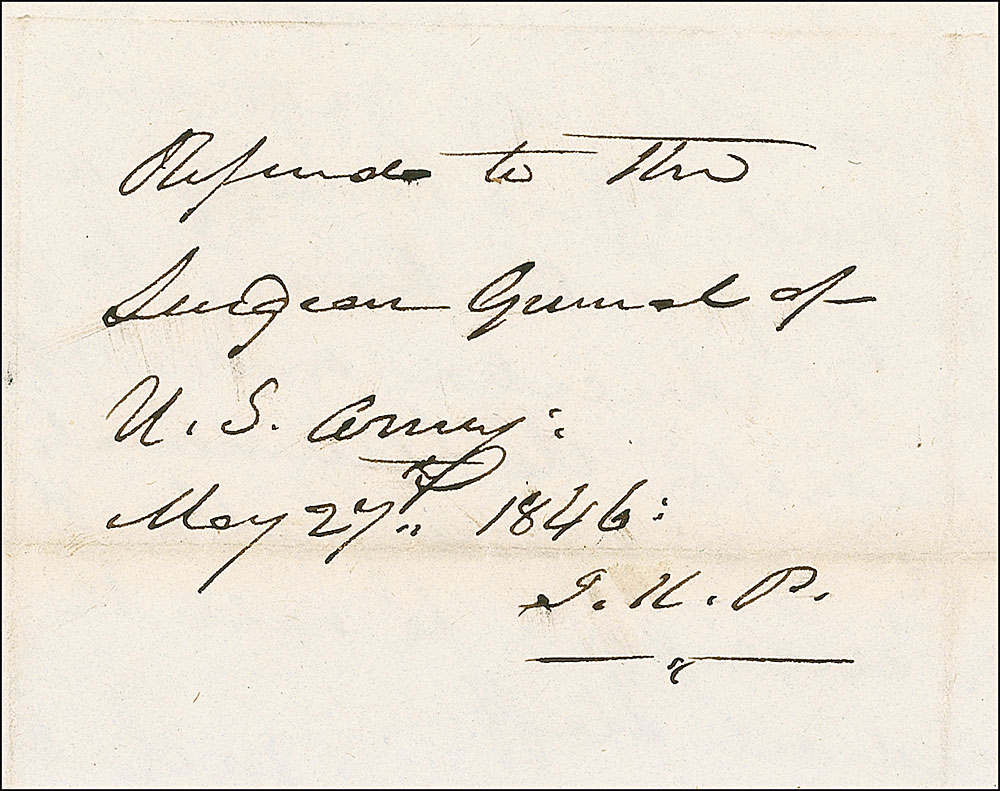 Refered to the
Surgeon General of
U. S. Army:
May 27th. 1846:
J. K. P.